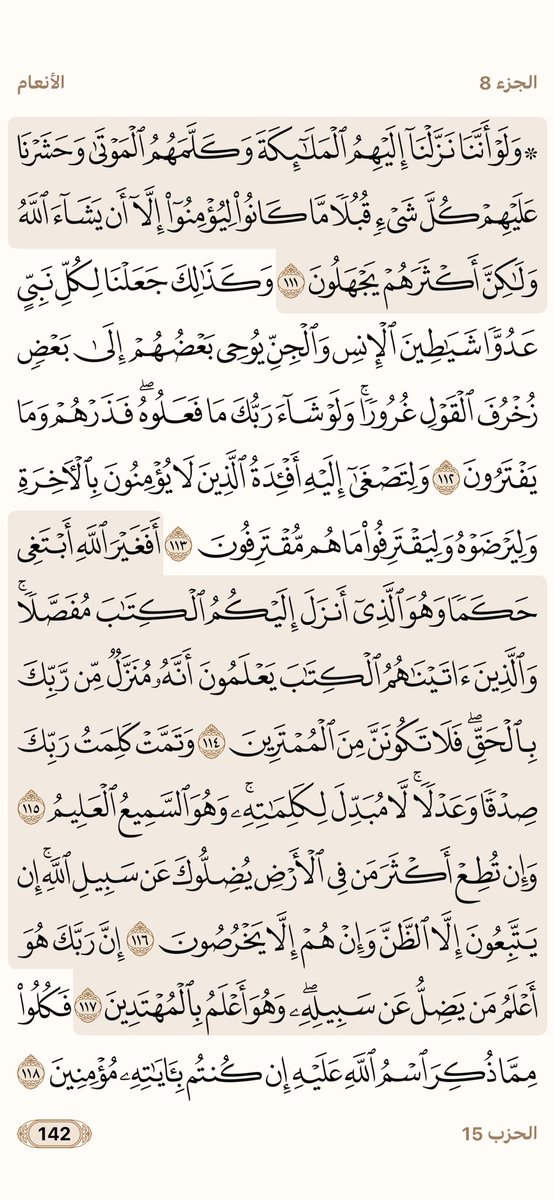 الجزء 8
الأنعام
۞ وَلَوْ أَنَّنَا نَزَّلْنَآ إِلَيْهِمُ ٱلْمَلَـٰٓئِكَةَ وَكَلَّمَهُمُ ٱلْمَوْتَىٰ وَحَشَرْنَا
عَلَيْهِمْ كُلَّ شَىْءٍ قُبُلًا مَّا كَانُوا۟ لِيُؤْمِنُوٓا۟ إِلَّآ أَن يَشَآءَ ٱللَّهُ
وَلَـٰكِنَّ أَكْثَرَهُمْ يَجْهَلُونَ ١١١ وَكَذَٰلِكَ جَعَلْنَا لِكُلِّ نَبِىٍّ
عَدُوًّا شَيَـٰطِينَ ٱلْإِنسِ وَٱلْجِنِّ يُوحِى بَعْضُهُمْ إِلَىٰ بَعْضٍ
زُخْرُفَ ٱلْقَوْلِ غُرُورًا ۚ وَلَوْ شَآءَ رَبُّكَ مَا فَعَلُوهُ ۖ فَذَرْهُمْ وَمَا
يَفْتَرُونَ ١١٢ وَلِتَصْغَىٰٓ إِلَيْهِ أَفْـِٔدَةُ ٱلَّذِينَ لَا يُؤْمِنُونَ بِٱلْـَٔاخِرَةِ
وَلِيَرْضَوْهُ وَلِيَقْتَرِفُوا۟ مَا هُم مُّقْتَرِفُونَ ١١٣ أَفَغَيْرَ ٱللَّهِ أَبْتَغِى
حَكَمًا وَهُوَ ٱلَّذِىٓ أَنزَلَ إِلَيْكُمُ ٱلْكِتَـٰبَ مُفَصَّلًا ۚ
وَٱلَّذِينَ ءَاتَيْنَـٰهُمُ ٱلْكِتَـٰبَ يَعْلَمُونَ أَنَّهُۥ مُنَزَّلٌ مِّن رَّبِّكَ
بِٱلْحَقِّ ۖ فَلَا تَكُونَنَّ مِنَ ٱلْمُمْتَرِينَ ١١٤ وَتَمَّتْ كَلِمَتُ رَبِّكَ
صِدْقًا وَعَدْلًا ۚ لَّا مُبَدِّلَ لِكَلِمَـٰتِهِۦ ۚ وَهُوَ ٱلسَّمِيعُ ٱلْعَلِيمُ ١١٥
وَإِن تُطِعْ أَكْثَرَ مَن فِى ٱلْأَرْضِ يُضِلُّوكَ عَن سَبِيلِ ٱللَّهِ ۚ إِن
يَتَّبِعُونَ إِلَّا ٱلظَّنَّ وَإِنْ هُمْ إِلَّا يَخْرُصُونَ ١١٦ إِنَّ رَبَّكَ هُوَ
أَعْلَمُ مَن يَضِلُّ عَن سَبِيلِهِۦ ۖ وَهُوَ أَعْلَمُ بِٱلْمُهْتَدِينَ ١١٧ فَكُلُوا۟
مِمَّا ذُكِرَ ٱسْمُ ٱللَّهِ عَلَيْهِ إِن كُنتُم بِـَٔايَـٰتِهِۦ مُؤْمِنِينَ ١١٨
الحزب 15
142